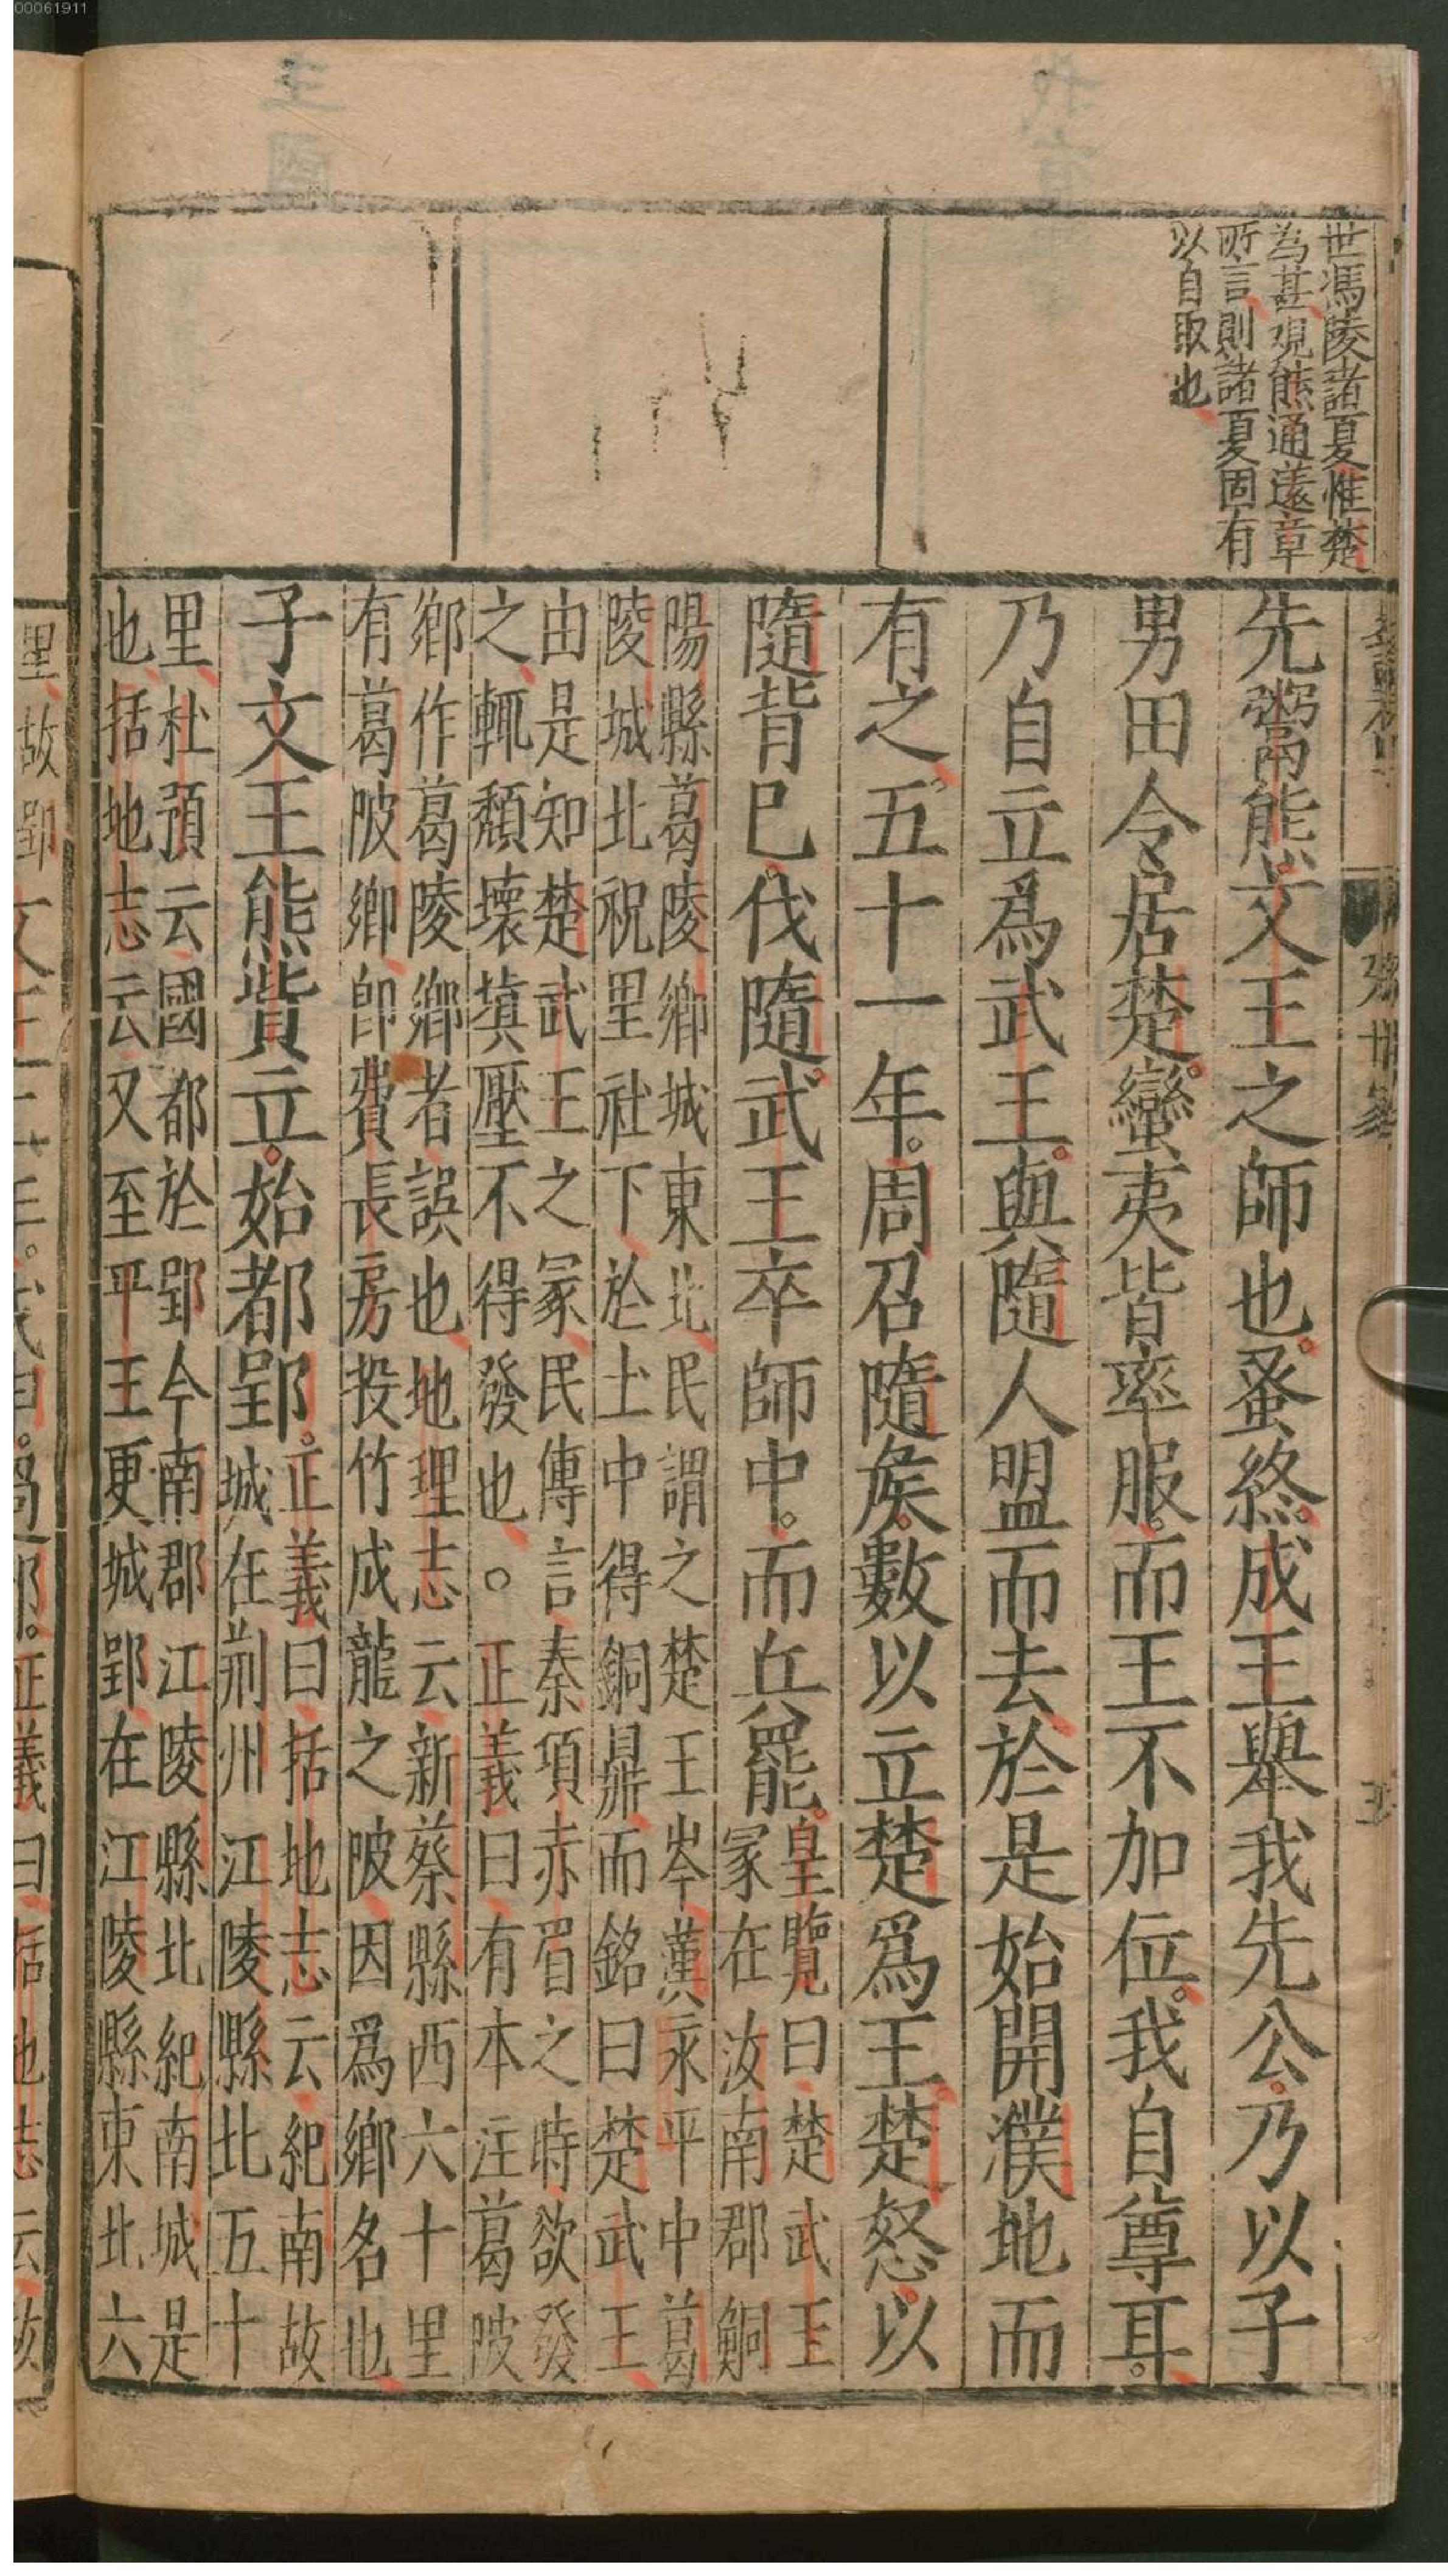 00061911
世馮陵諸夏惟楚
為甚觀熊通薳章
所言則諸夏固有
以自取也
先鬻熊文王之師也蚤終成王舉我先公乃以子
男田令居楚蠻夷皆率服而王不加位我自尊耳
乃自立爲武王與隨人盟而去於是始開濮地而
有之五十一年周召隨矦數以立楚爲王楚怒以
隨背已伐隨武王卒師中而兵罷皇覽曰楚武王
冢在汝南郡鮦
陽縣葛陵鄉城東北民謂之楚王岑漢永平中葛
陵城北祝里社下於土中得銅鼎而銘曰楚武王
由是知楚武王之冢民傳言秦項赤眉之時欲發
之輒頹壞填壓不得發也○正義曰有本注葛陂
鄉作葛陵鄉者誤也地理志云新蔡縣西六十里
有葛陂鄉卽費長房投竹成龍之陂因爲鄉名也
子文王熊貲立始都郢正義曰括地志云紀南故
城在荊州江陵縣北五十
里杜預云國都於郢今南郡江陵縣北紀南城是
也括地志云又至平王更城郢在江陵縣東北六